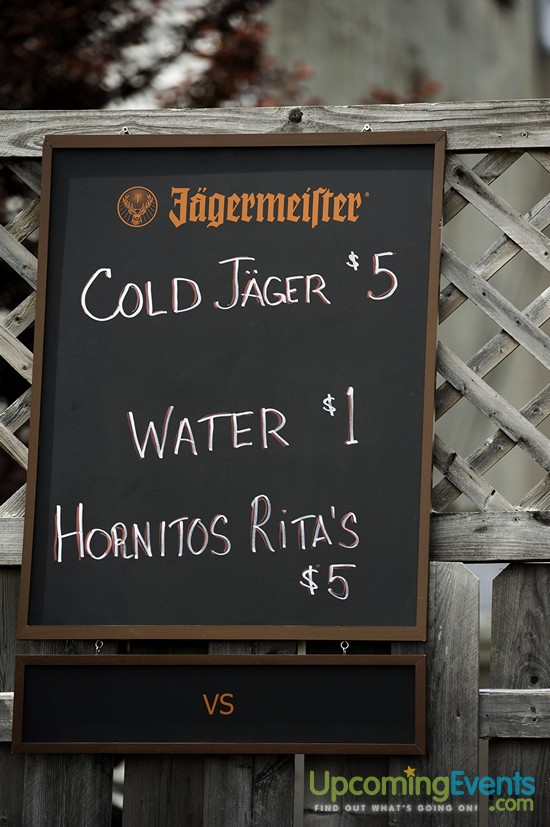 Jägermeister®
COLD JÄGER $5
WATER $1
HORNITOS RITA'S
$5
VS
UpcomingEvents
FIND OUT WHAT'S GOING ON! .com